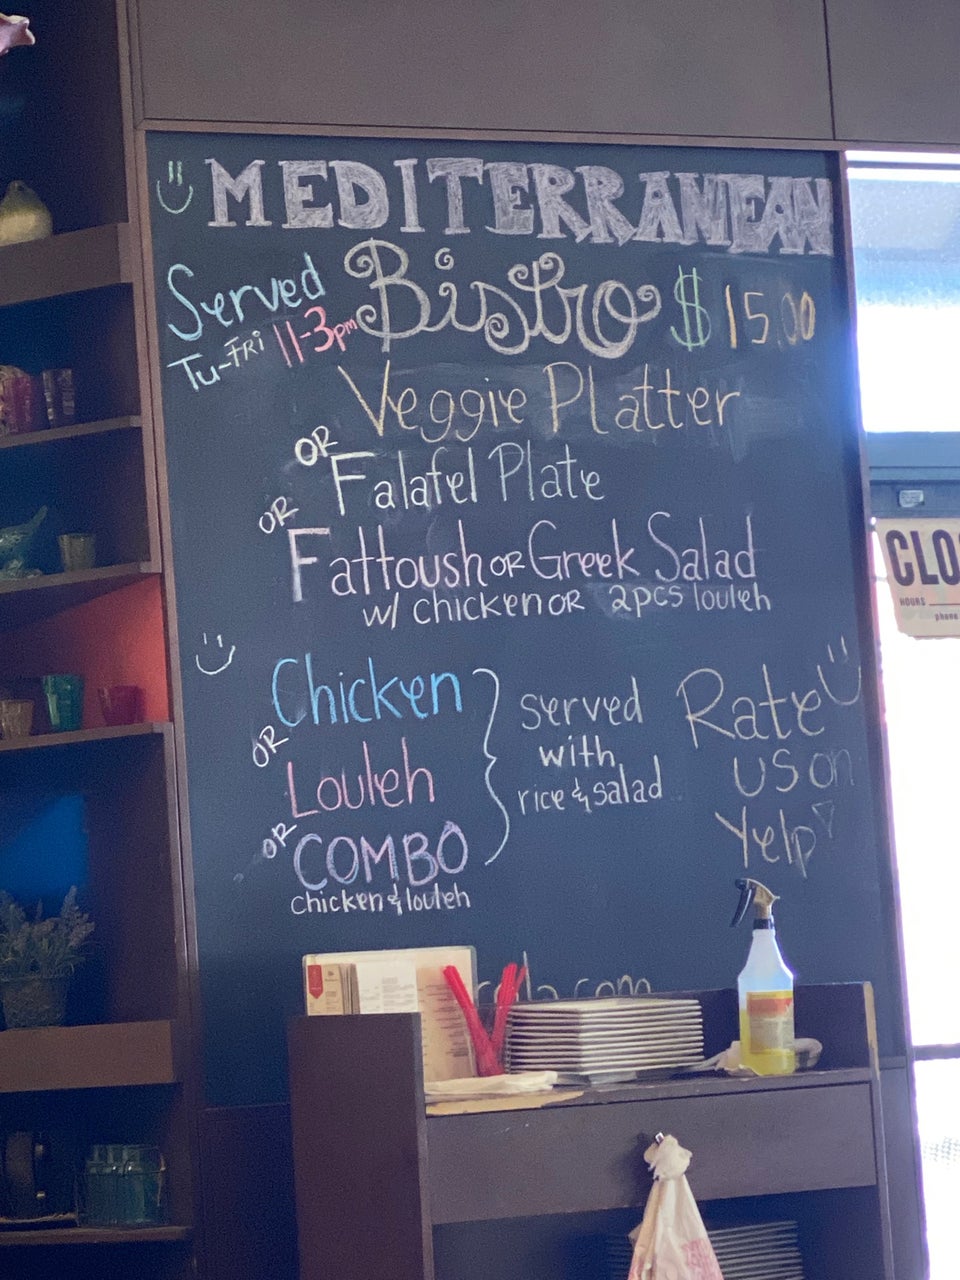 MEDITERRANEAN
Bistro $15.00
Served
Tu-FRI 11-3pm
Veggie Platter
OR
Falafel Plate
OR
Fattoush OR Greek Salad
w/ chicken OR 2pcs louleh
Chicken
OR
Louleh
OR
COMBO
chicken & louleh
served
with
rice & salad
Rate
us on
Yelp
.com
CLO
HOURS
phone